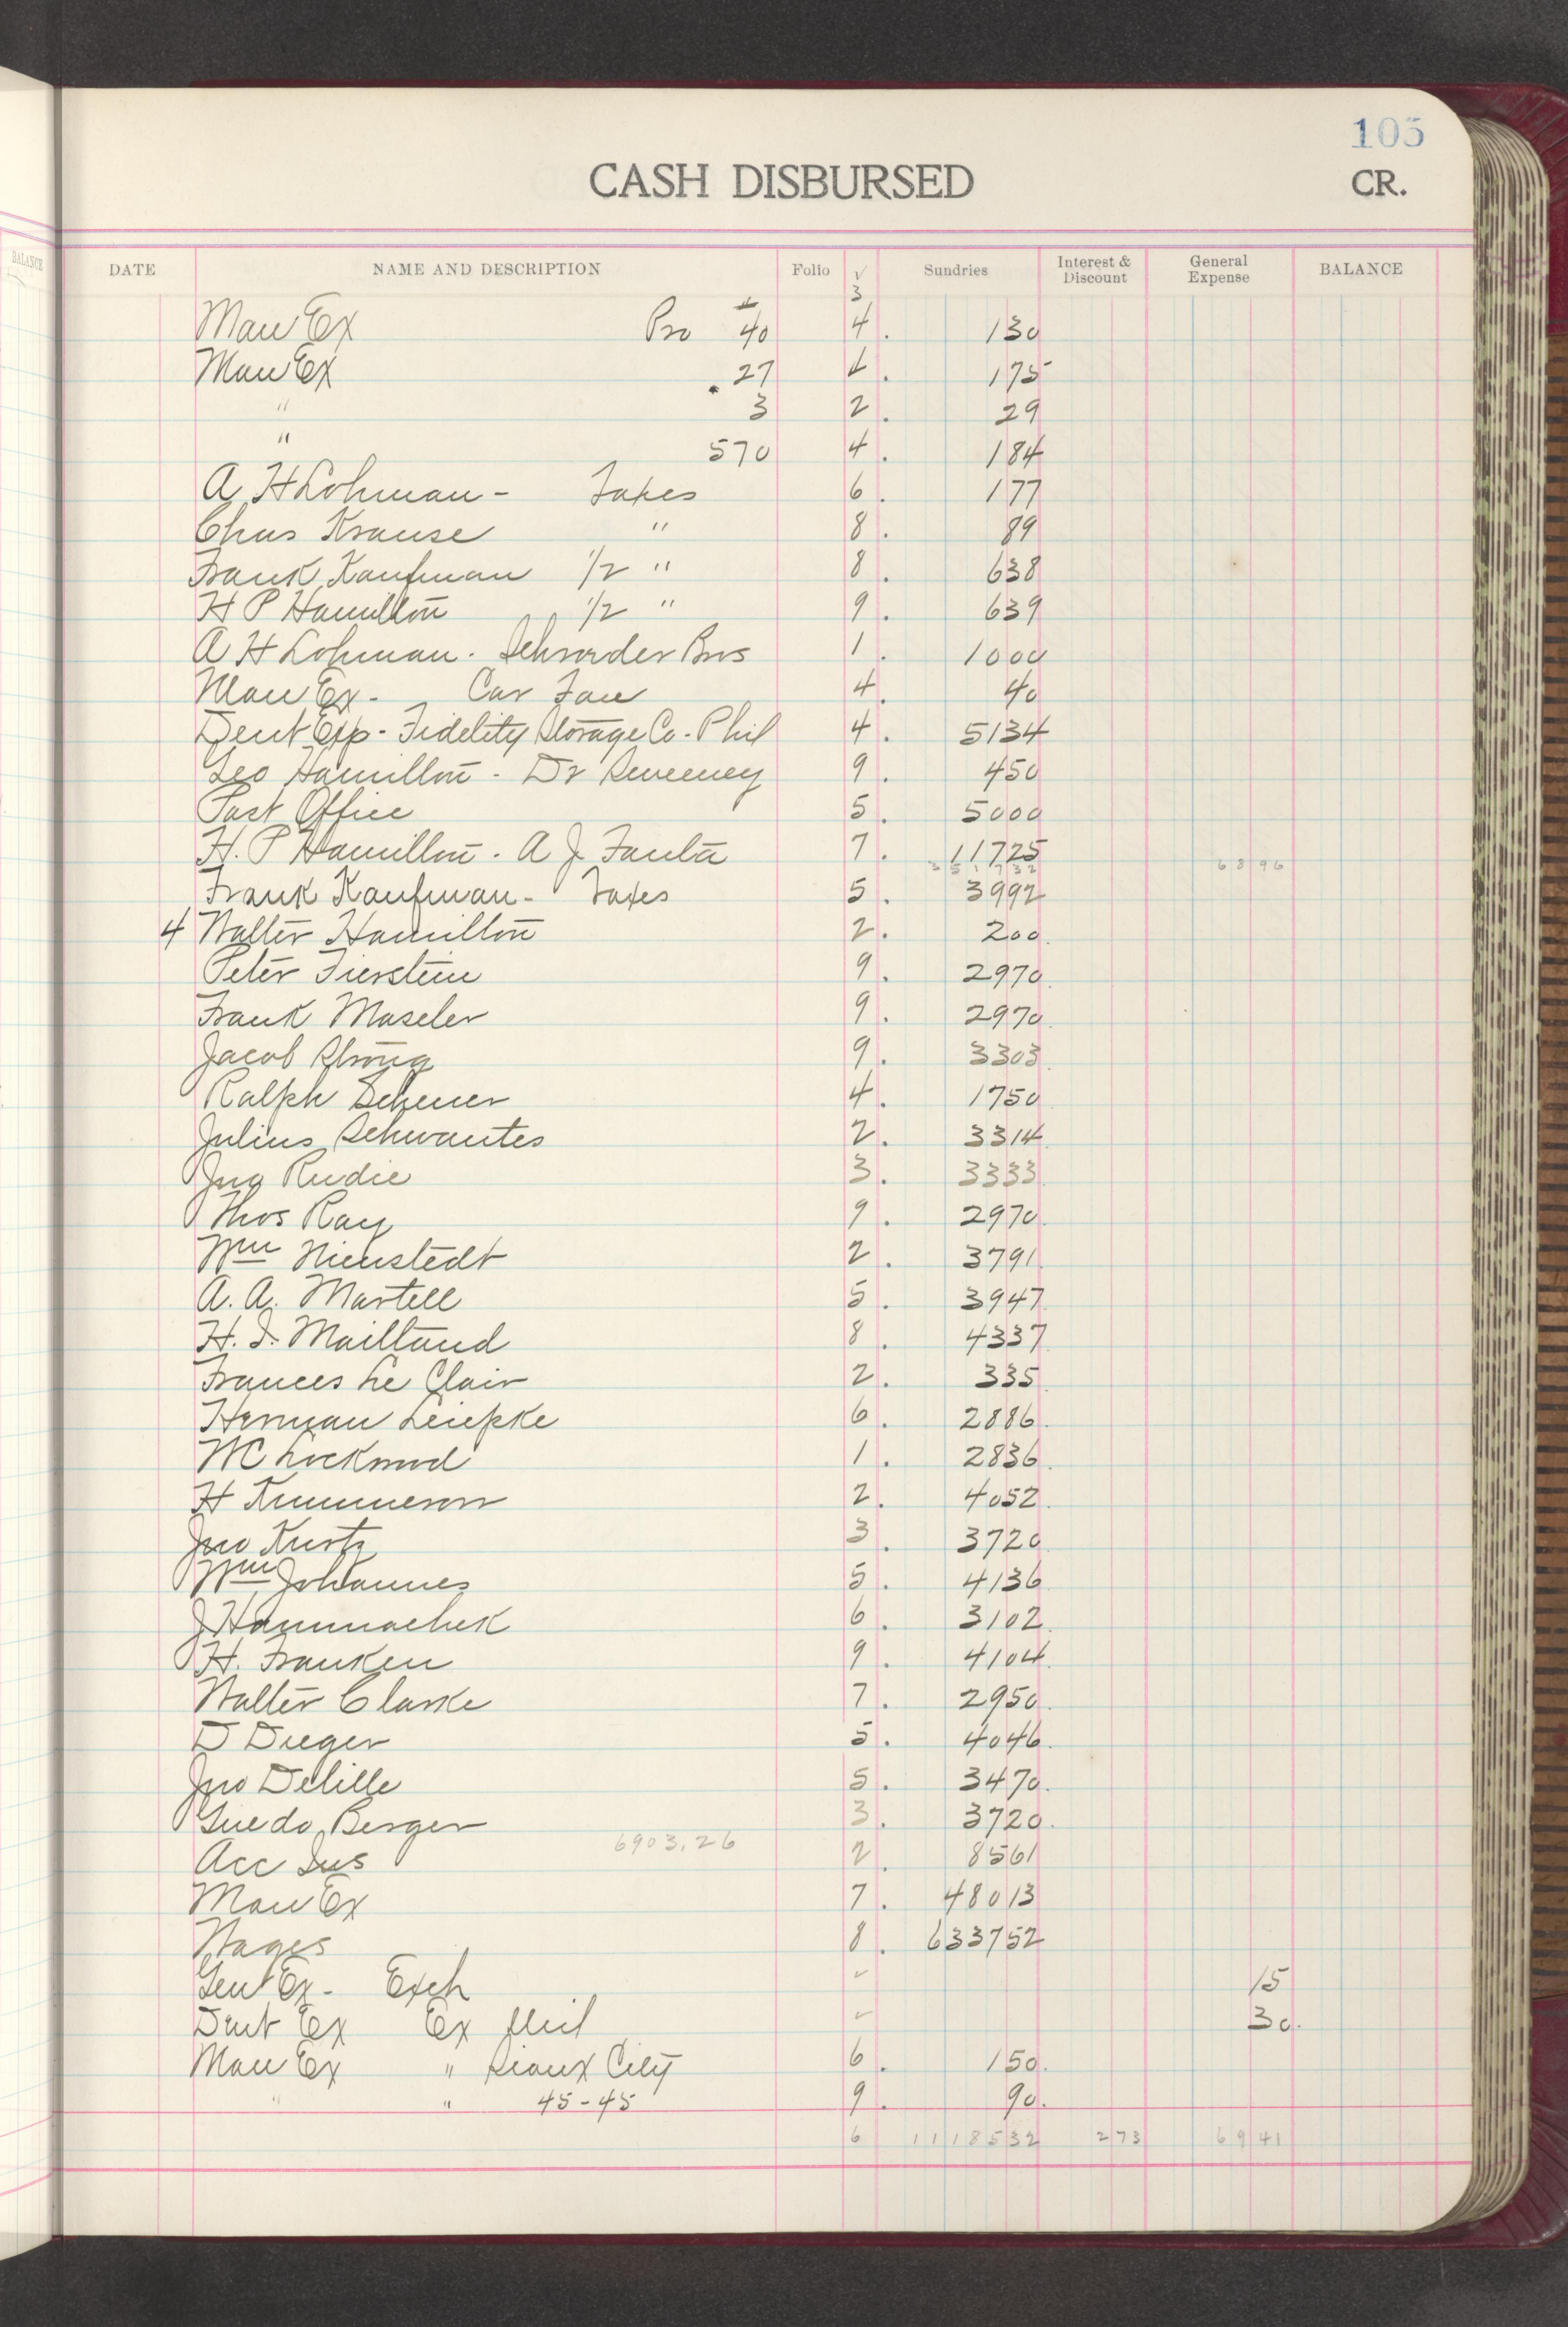 105
CASH DISBURSED
CR.
BALANCE
DATE NAME AND DESCRIPTION Folio ✓ Sundries Interest & Discount General Expense BALANCE
3
Man Ex Pro # 40 4. 130
Man Ex 27 4. 175
" 3 2. 29
" 570 4. 184
A H Lohman - Taxes 6. 177
Chas Krause " 8. 89
Frank Kaufman 1/2 " 8. 638
H P Hamilton 1/2 " 9. 639
A H Lohman. Schroeder Bros 1. 1000
Man Ex - Car Fare 4. 40
Dent Exp - Fidelity Storage Co - Phil 4. 5134
Geo Hamilton - Dr Sweeney 9. 450
Post Office 5. 5000
H. P Hamilton. A J 7. 11725
351732 6896
Frank Kaufman - Taxes 5. 3992
4 Walter Hamilton 2. 200
Peter Fierstein 9. 2970
Frank Maseler 9. 2970
Jacob Strong 9. 3303
Ralph Scheuer 4. 1750
Julius Schwantes 2. 3314
Jno Rudie 3. 3333
Thos Ray 9. 2970
Wm Nienstedt 2. 3791
A. A. Martell 5. 3947
H. I. Maitland 8. 4337
Frances Le Clair 2. 335
Herman Leiepke 6. 2886
WC Lockwood 1. 2836
H 2. 4052
Jno Kurtz 3. 3720
Wm Johannes 5. 4136
J Hammachek 6. 3102
H. Franken 9. 4104
Walter Clarke 7. 2950
D Dieger 5. 4046
Jno Delille 5. 3470
Guedo Berger 3. 3720
6903.26
Acc Ins 2. 8561
Man Ex 7. 48013
Wages 8. 633752
Genl Ex - Exch ✓ 15
Dent Ex Ex ✓ 30
Man Ex " Sioux City 6. 150
" " 45-45 9. 90
6 1118532 273 6941